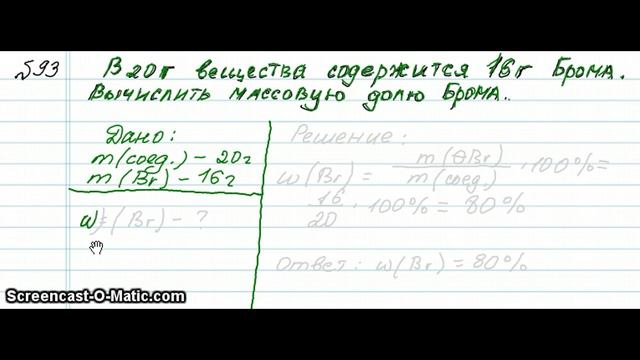 №93 В 20г вещества содержится 16г Брома.
Вычислить массовую долю Брома..
Дано:
m(соед.) - 20г
m(Br) - 16г
ω=(Br) - ?
Решение:
ω(Br) = m(Br) / m(соед.) · 100% =
16 / 20 · 100% = 80%
Ответ: ω(Br) = 80%
Screencast-O-Matic.com